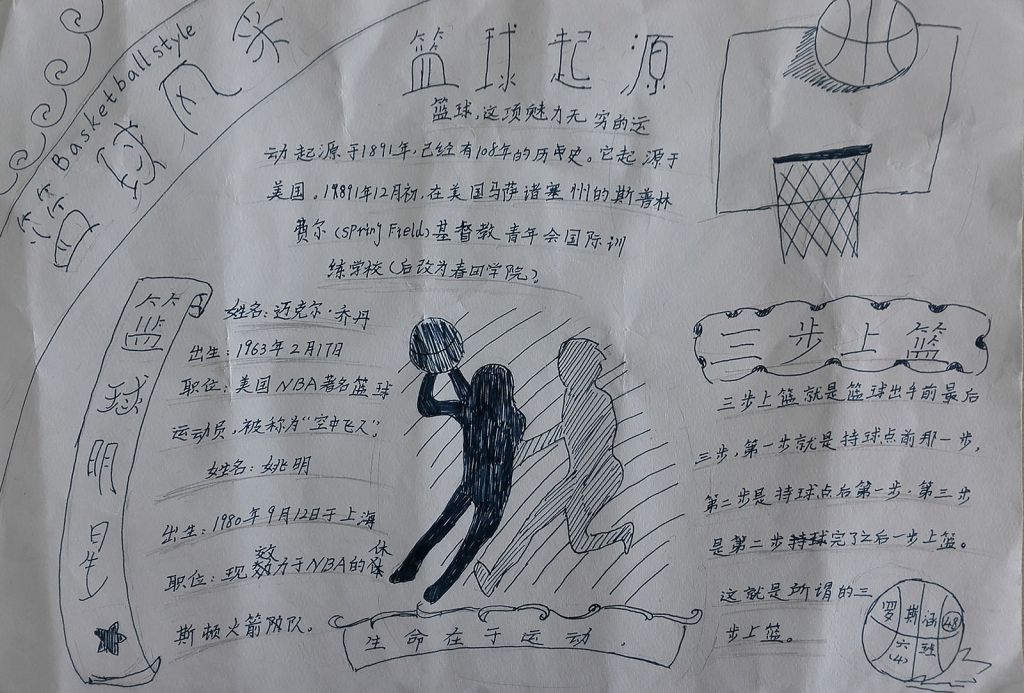 篮球风采
Basketball style
篮球起源
篮球,这项魅力无穷的运
动起源于1891年,已经有108年的历史。它起源于
美国。19891年12月初,在美国马萨诸塞州的斯普林
费尔(Spring Field)基督教青年会国际训
练学校(后改为春田学院)
篮球明星
姓名:迈克尔·乔丹
出生:1963年2月17日
职位:美国NBA著名篮球
运动员,被称为“空中飞人”
姓名:姚明
出生:1980年9月12日于上海
职位:现效力于NBA的休
斯顿火箭队。
生命在于运动.
三步上篮
三步上篮就是篮球出手前最后
三步,第一步就是持球点前那一步,
第二步是持球点后第一步.第三步
是第二步持球完了之后一步上篮。
这就是所谓的三
步上篮。
罗斯涵 48
六(4)班